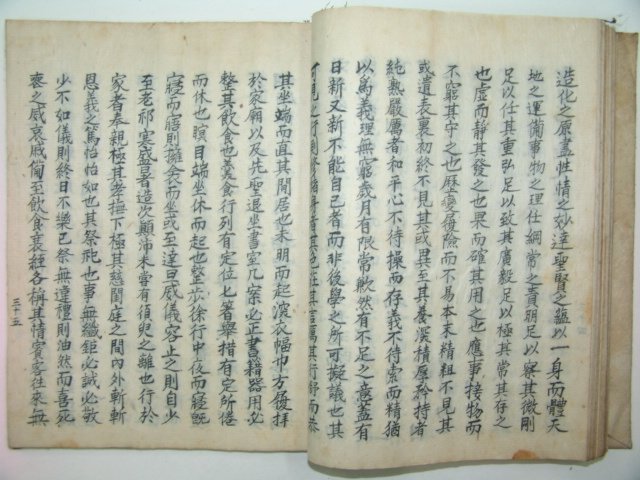 造化之原盡性情之妙達聖賢之蘊以一身而體天
地之運備事物之理任綱常之責明足以察其微剛
足以任其重弘足以致其廣毅足以極其常其存之
也虛而靜其發之也果而確其用之也應事接物而
不窮其守之也歷變履險而不易本末精粗不見其
或遺表裏初終不見其或異至其養深積厚矜持者
純熟嚴厲者和平心不待操而存義不待索而精猶
以爲義理無窮歲月有限常歉然有不足之意盖有
日新又新不能自已者而非後學之所可擬議也其
可見之行則修諸身者其色莊其言厲其行舒而恭
其坐端而直其閒居也未明而起深衣幅巾方履拜
於家廟以及先聖退坐書室几案必正書籍器用必
整其飲食也羹食行列有定位匕箸舉措有定所倦
而休也瞑目端坐休而起也整步徐行中夜而寢旣
寢而寤則擁衾而坐或至達旦威儀容止之則自少
至老祁寒盛暑造次顚沛未嘗有須臾之離也行於
家者奉親極其孝撫下極其慈閨庭之間內外斬斬
恩義之篤怡怡如也其祭祀也事無纖鉅必誠必敬
少不如儀則終日不樂已祭無違禮則油然而喜死
喪之威哀戚備至飲食衰絰各稱其情賓客往來無
三十五